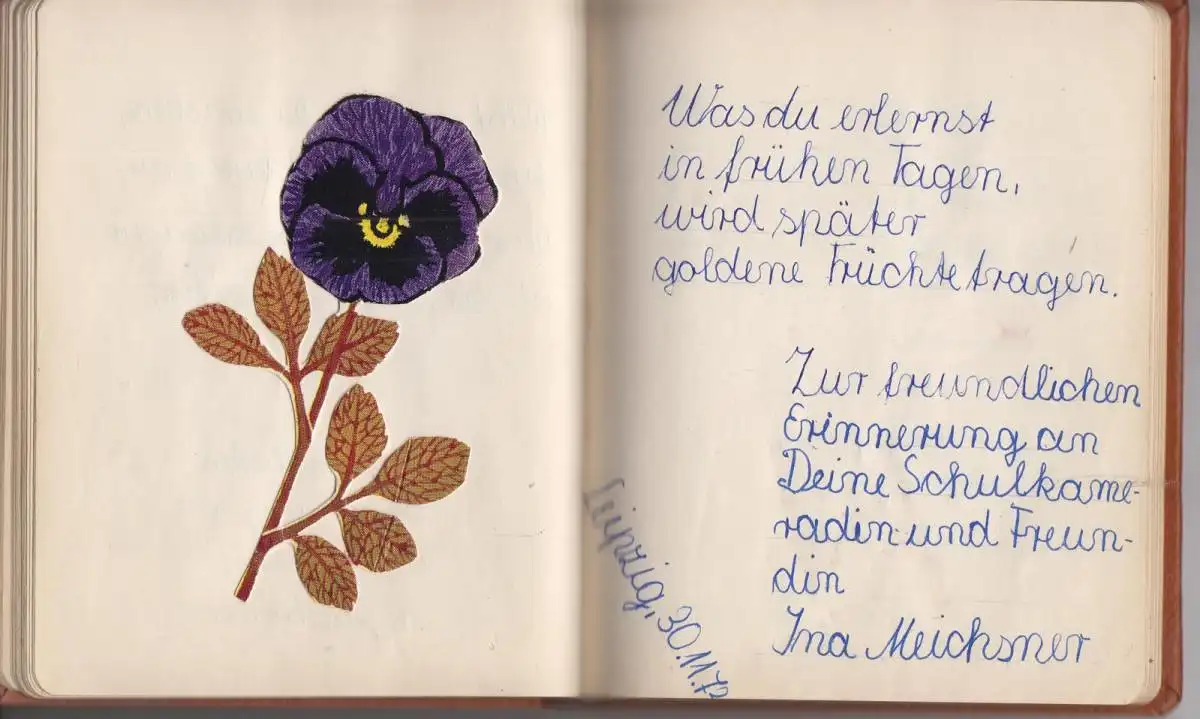 Was du erlernst
in frühen Tagen,
wird später
goldene Früchte tragen.
Zur freundlichen
Erinnerung an
Deine Schulkame-
radin und Freun-
din
Ina Meichsner
Leipzig, 30.11.7